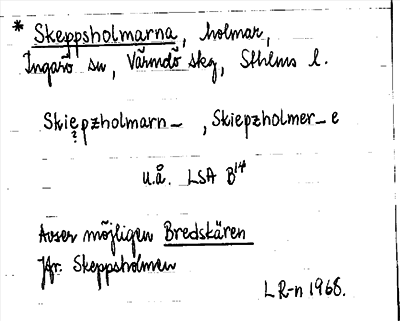 * Skeppsholmarna, holmar,
Ingarö sn, Värmdö skg, Sthlms l.
Skiepzholmarn_ , Skiepzholmer_e
?
u.å. LSA B14
Avser möjligen Bredskären
Jfr. Skeppsholmen
LR-n 1968.